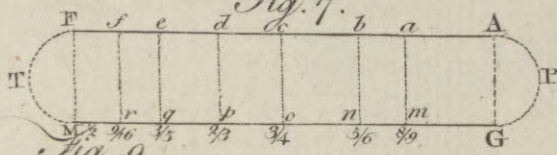 Fig. 7.
F f e d c b a A
T P
M r q p o n m G
1/2 9/16 3/5 2/3 3/4 5/6 8/9
Fig. 9.